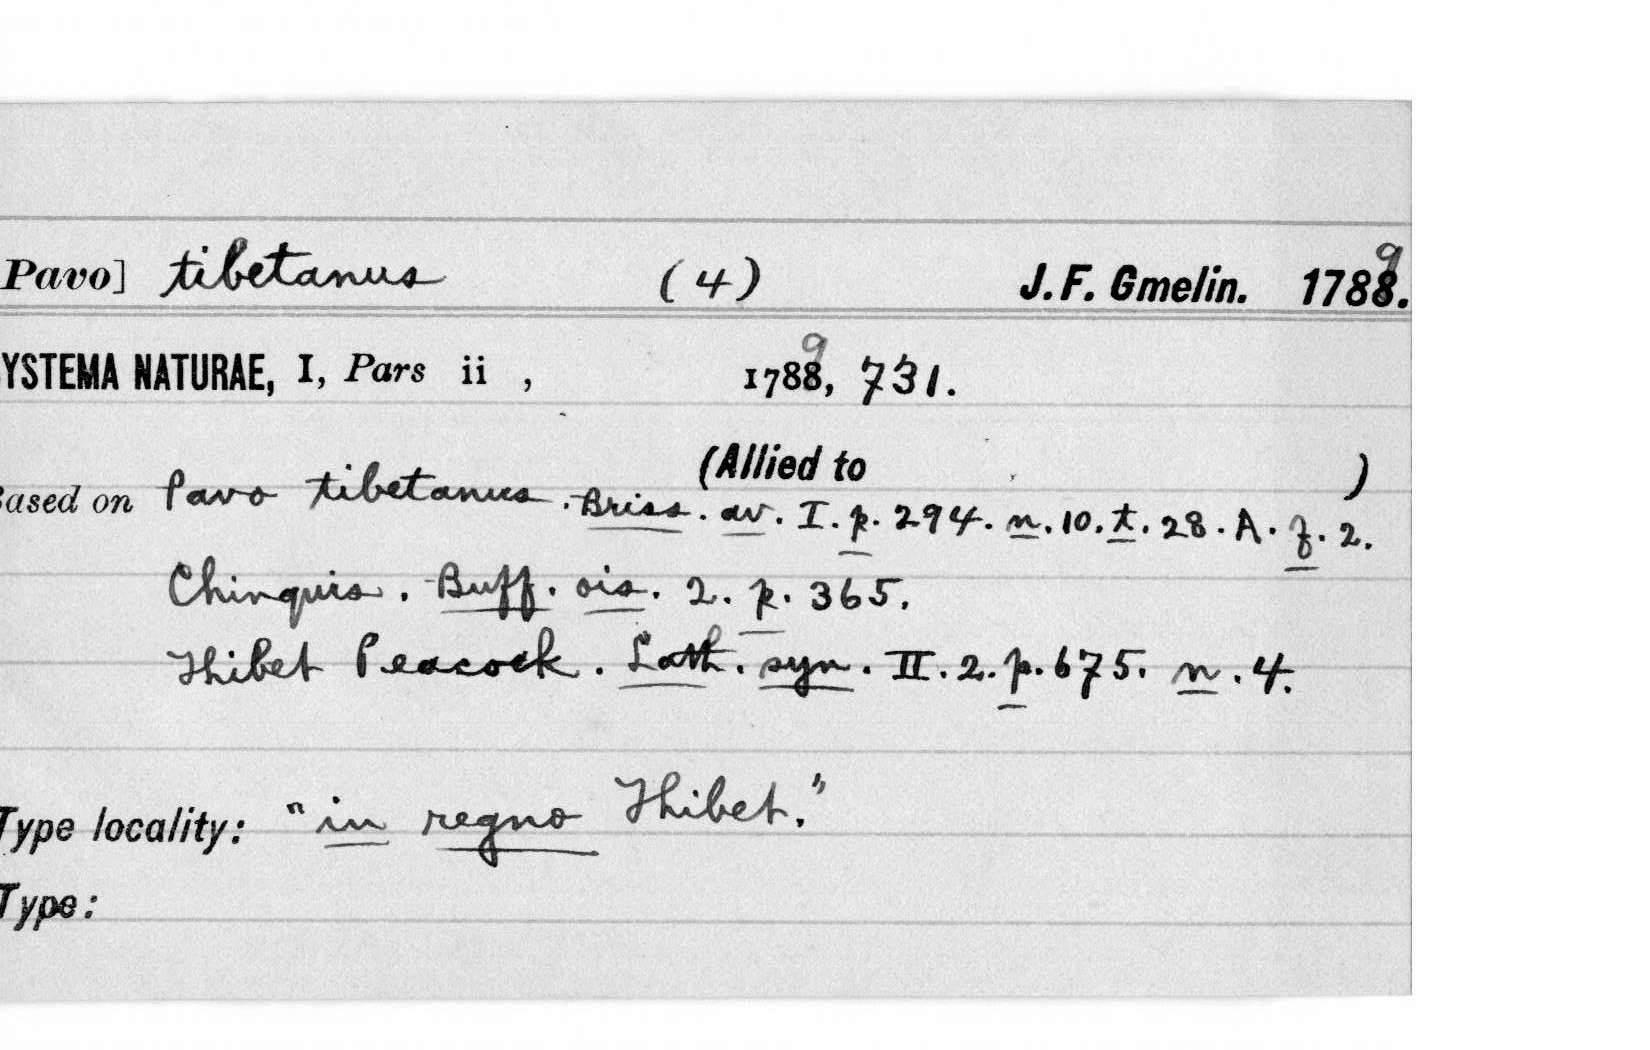 Pavo] tibetanus (4) J. F. Gmelin. 1788. 9
YSTEMA NATURAE, I, Pars ii , 1788, 9 731.
(Allied to )
ased on Pavo tibetanus. Briss. av. I. p. 294. n. 10. t. 28. A. f. 2.
Chinquis. Buff. ois. 2. p. 365.
Thibet Peacock. Lath. syn. II. 2. p. 675. n. 4.
Type locality: "in regno Thibet."
Type: